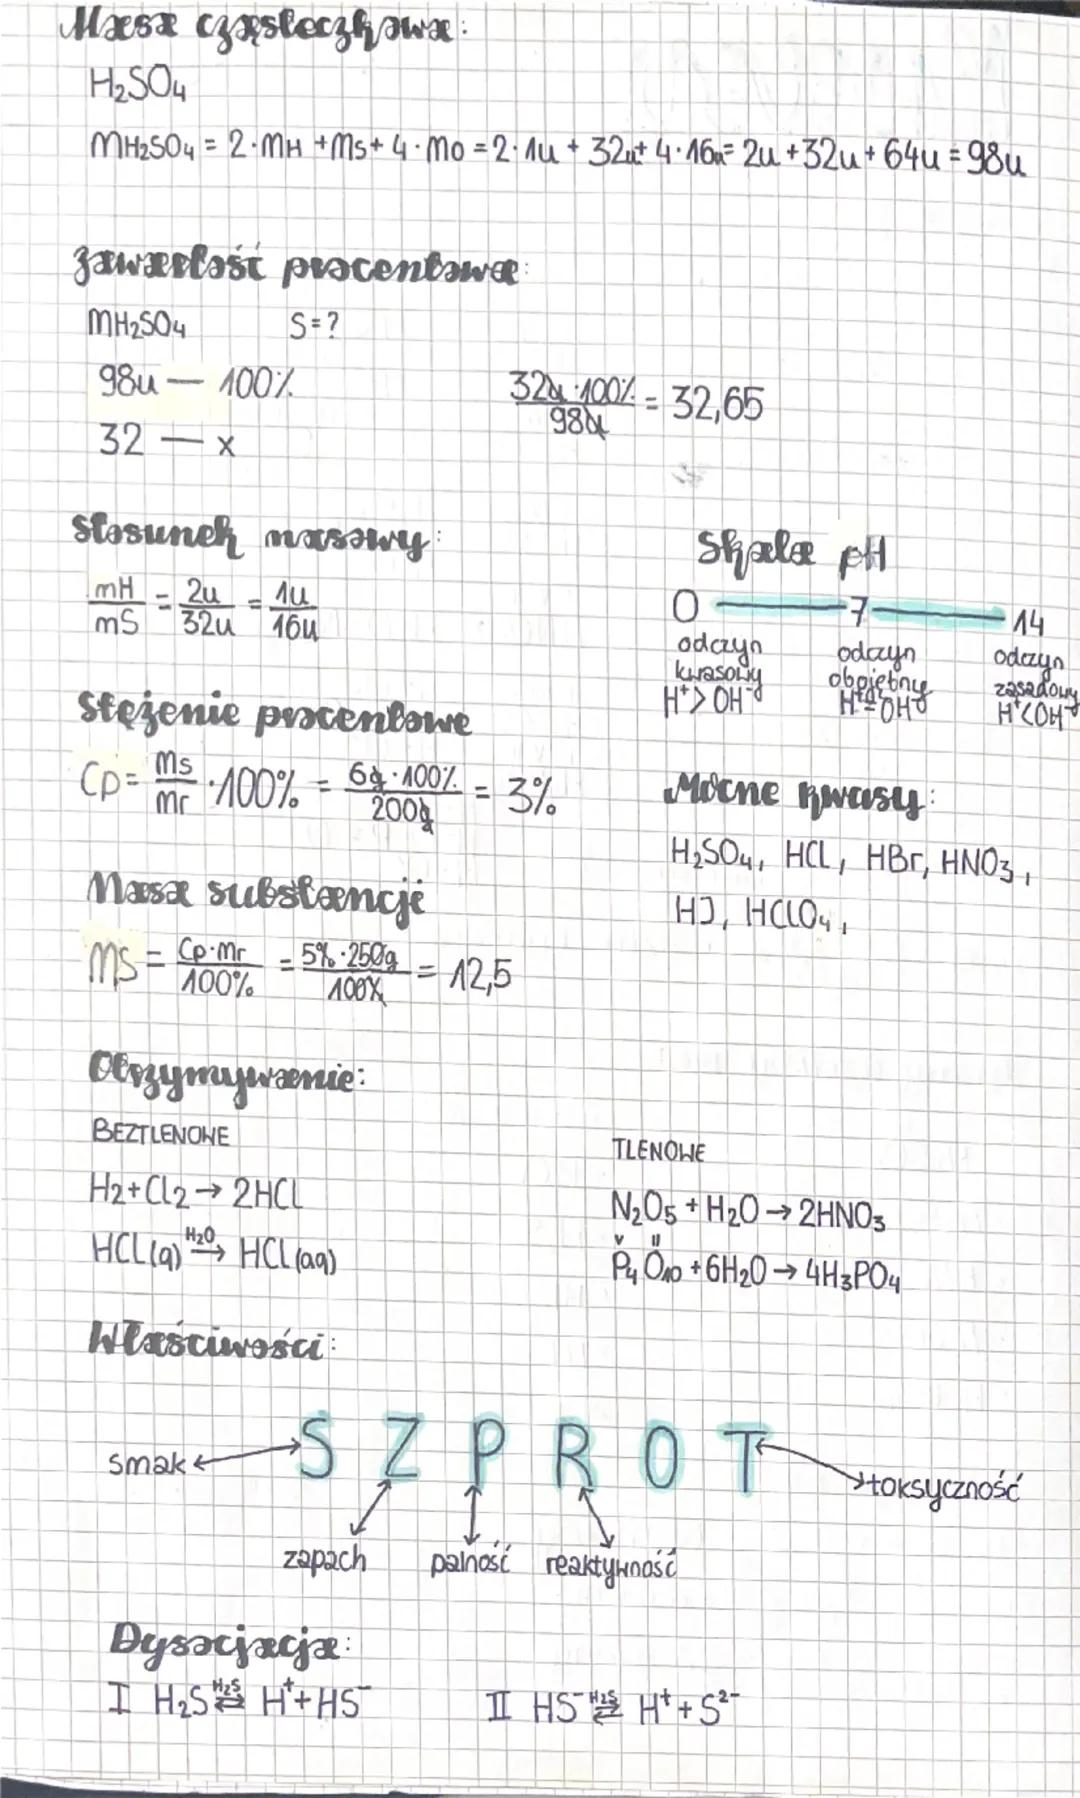 Masa cząsteczkowa:
H₂SO₄
mH₂SO₄ = 2·mH + ms + 4·mo = 2·1u + 32u + 4·16u = 2u + 32u + 64u = 98u
Zawartość procentowa:
mH₂SO₄ S=?
98u — 100%
32 — x
32u·100% / 98u = 32,65
Stosunek masowy:
mH/mS = 2u/32u = 1u/16u
Skala pH
0 — 7 — 14
odczyn kwasowy H⁺>OH⁻
odczyn obojętny H⁺=OH⁻
odczyn zasadowy H⁺<OH⁻
Stężenie procentowe
Cp = ms/mr · 100% = 6g·100%/200g = 3%
Mocne kwasy:
H₂SO₄, HCl, HBr, HNO₃,
HJ, HClO₄,
Masa substancji
ms = Cp·mr/100% = 5%·250g/100% = 12,5
Otrzymywanie:
BEZTLENOWE
H₂+Cl₂ → 2HCl
HCl(g) H₂O→ HCl(aq)
TLENOWE
N₂O₅ + H₂O → 2HNO₃
V II
P₄O₁₀ + 6H₂O → 4H₃PO₄
Właściwości:
S Z P R O T
smak
toksyczność
zapach palność reaktywność
Dysocjacja:
I H₂S H₂S⇄ H⁺+HS⁻
II HS⁻ H₂S⇄ H⁺+S²⁻